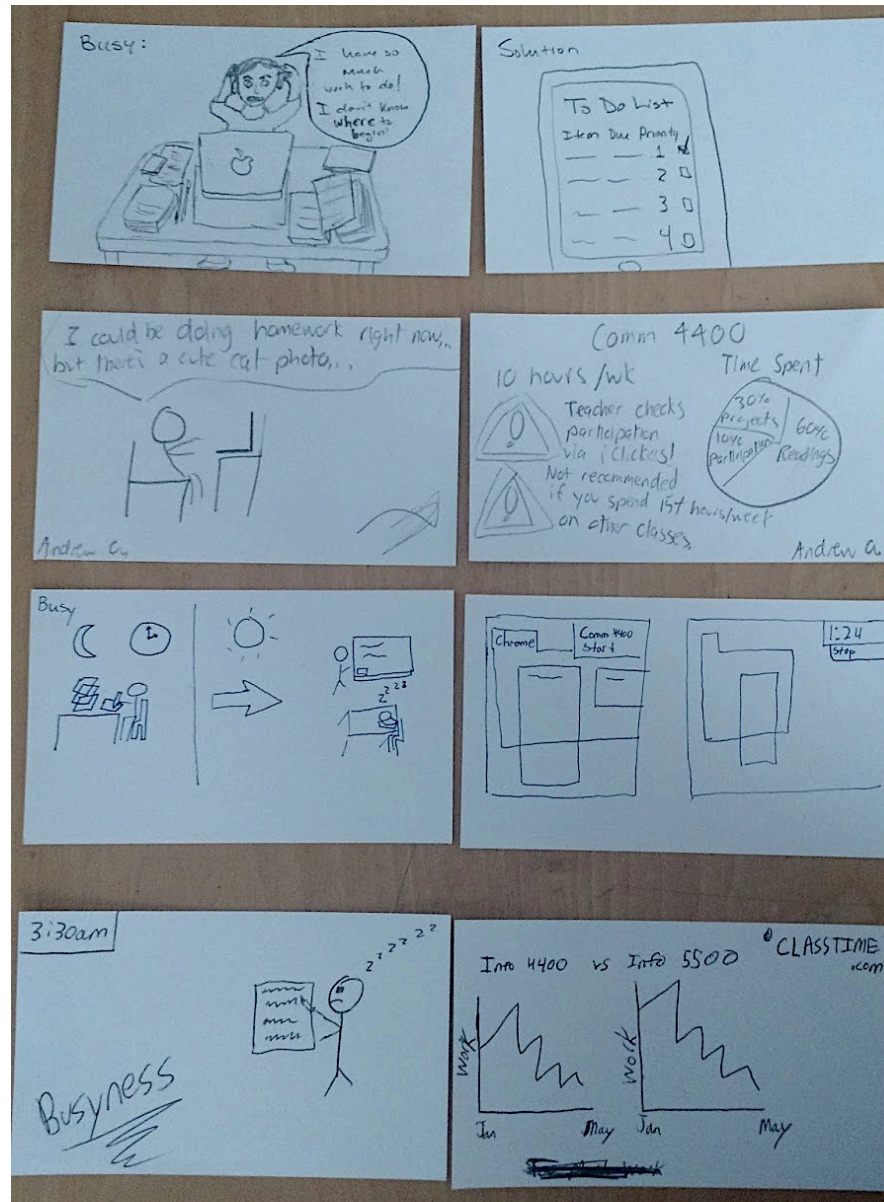 Busy:
I have so
much
work to do!
I don't know
where to
begin!
Solution
To Do List
Item Due Priority
1
2
3
4
I could be doing homework right now...
but there's a cute cat photo...
Andrew
Comm 4400
10 hours/wk
Teacher checks
participation
via iClickers!
Not recommended
if you spend 15+ hours/week
on other classes
Time Spent
30%
projects
10%
participation
60%
Readings
Andrew
Busy
z z z z
Chrome
Comm 4400
Start
1:24
Stop
3:30am
z z z z z z
Busyness
Info 4400 vs Info 5500
CLASSTIME
.com
Work
Jan May
Work
Jan May